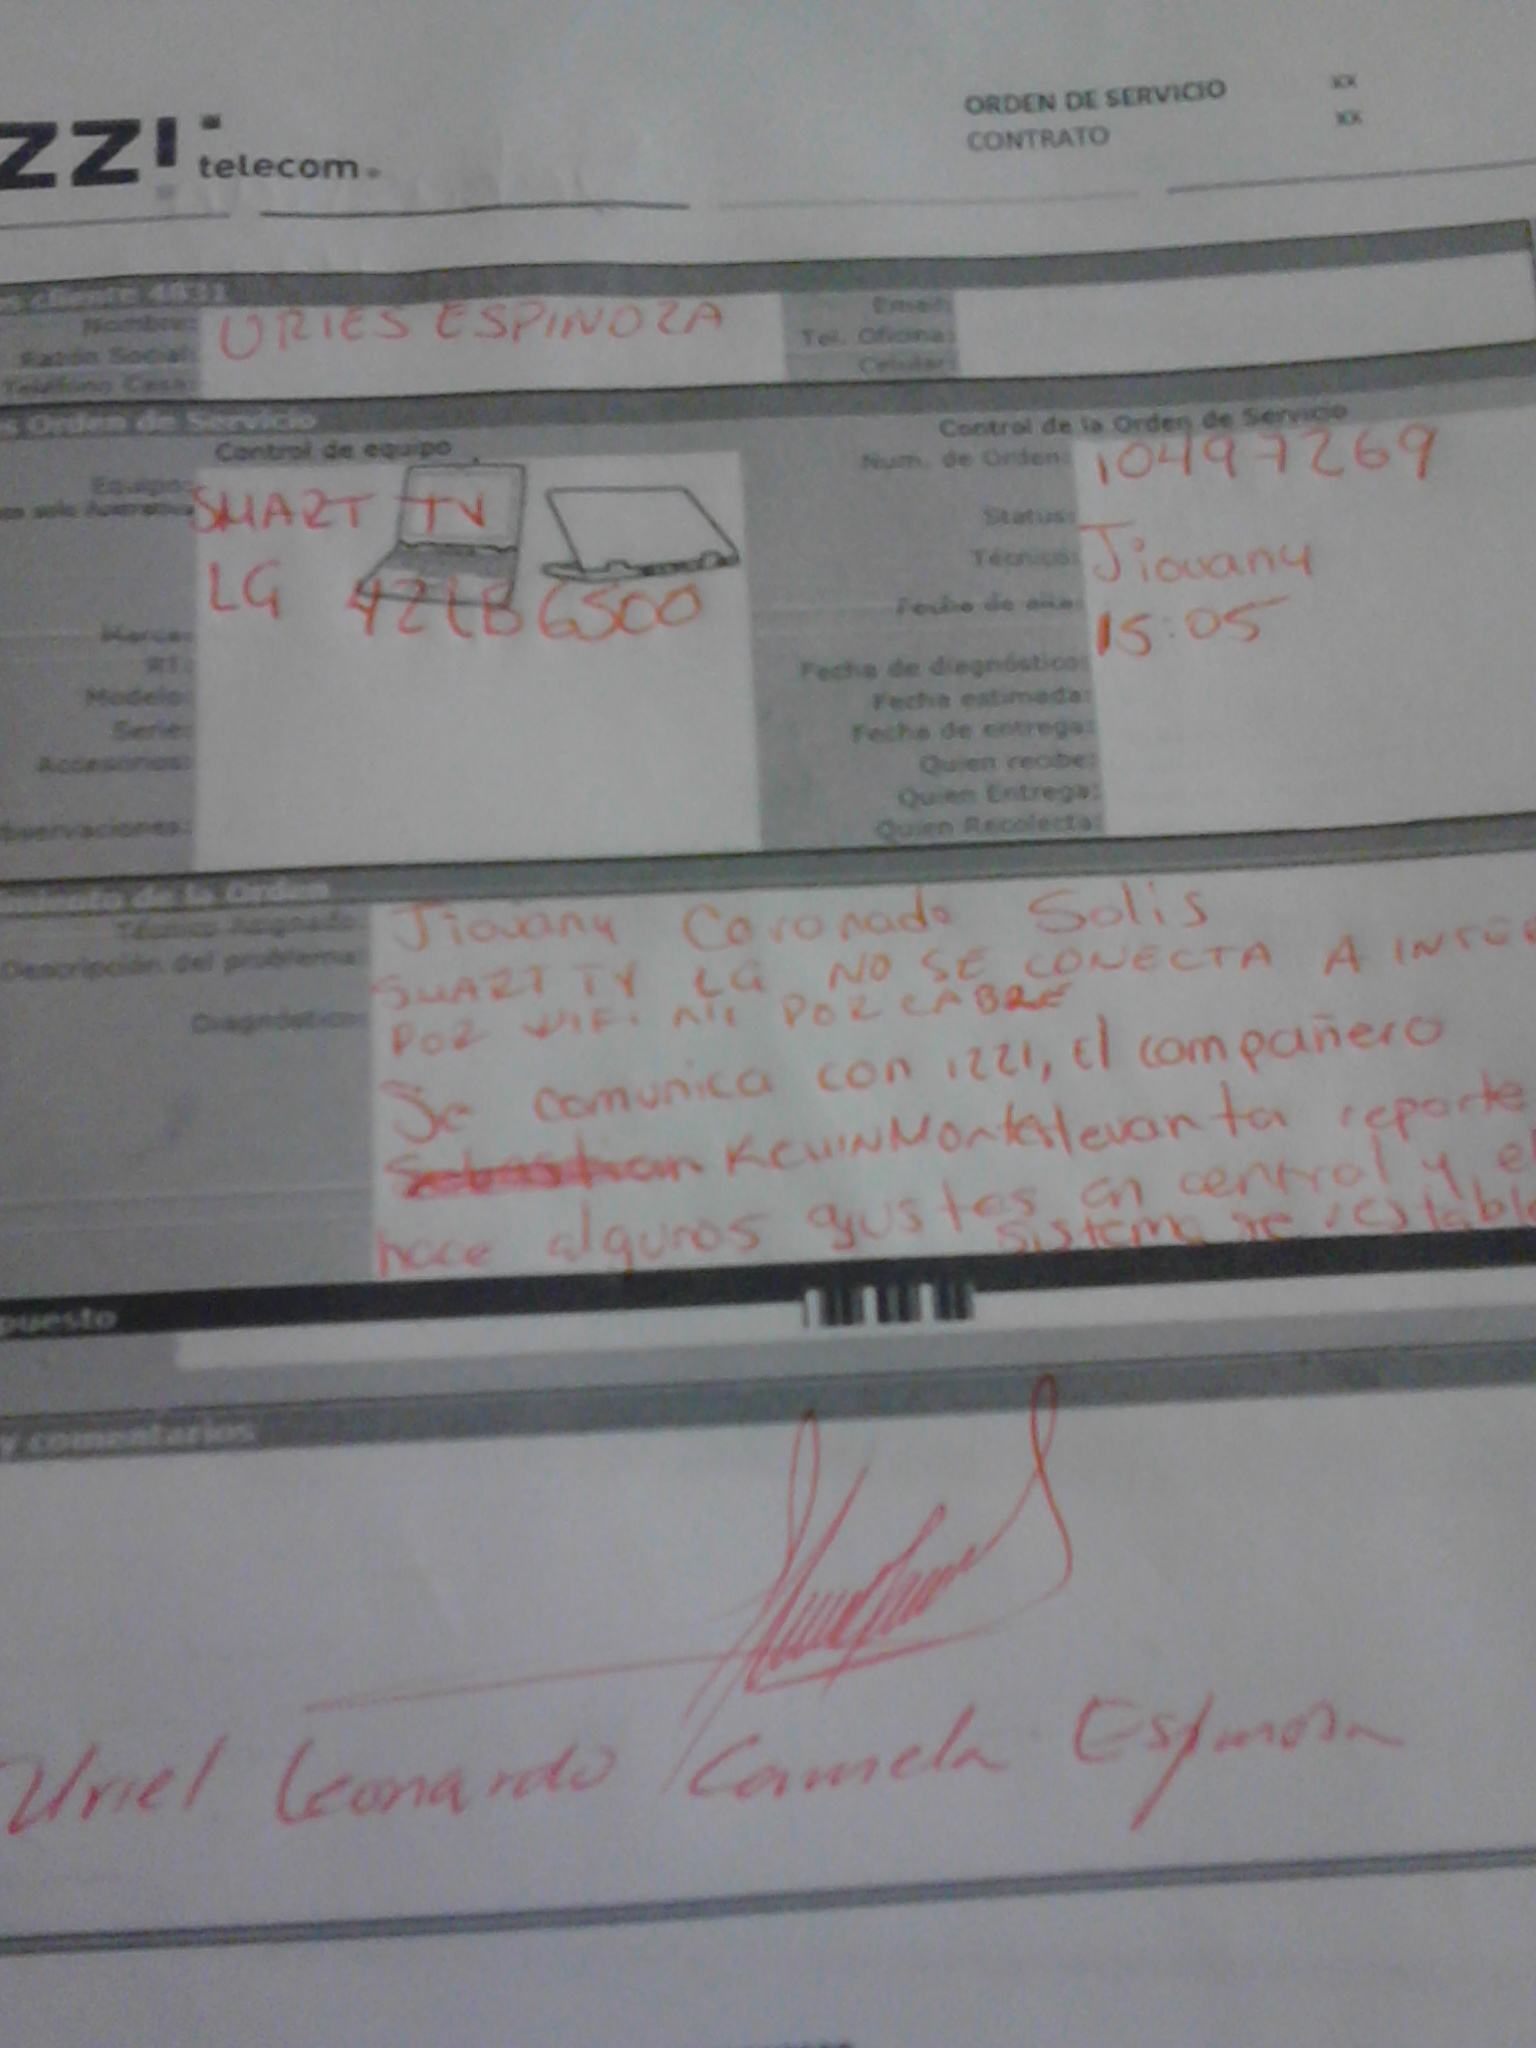 ZZ! telecom
ORDEN DE SERVICIO XX
CONTRATO XX
cliente 4831
Nombre: URIES ESPINOZA
Razón Social:
Teléfono Casa:
Email:
Tel. Oficina:
Celular:
s Orden de Servicio
Control de equipo
Equipo: SMART TV
LG 42LB6500
Marca:
RT:
Modelo:
Serie:
Accesorios:
bservaciones:
Control de la Orden de Servicio
Num. de Orden: 10497269
Status:
Técnico: Jiovany
Fecha de alta: 15:05
Fecha de diagnóstico:
Fecha estimada:
Fecha de entrega:
Quien recibe:
Quien Entrega:
Quien Recolecta:
miento de la Orden
Técnico Asignado: Jiovany Coronado Solis
Descripción del problema: SMART TV LG NO SE CONECTA A
POR WIFI NII POR CABRE
Diagnóstico:
Se comunica con izzi, El compañero
Sebastian levanta reporte
hace algunos ajustes en central y el
sistema se restable
puesto
y comentarios
Uriel Leonardo Espinosa